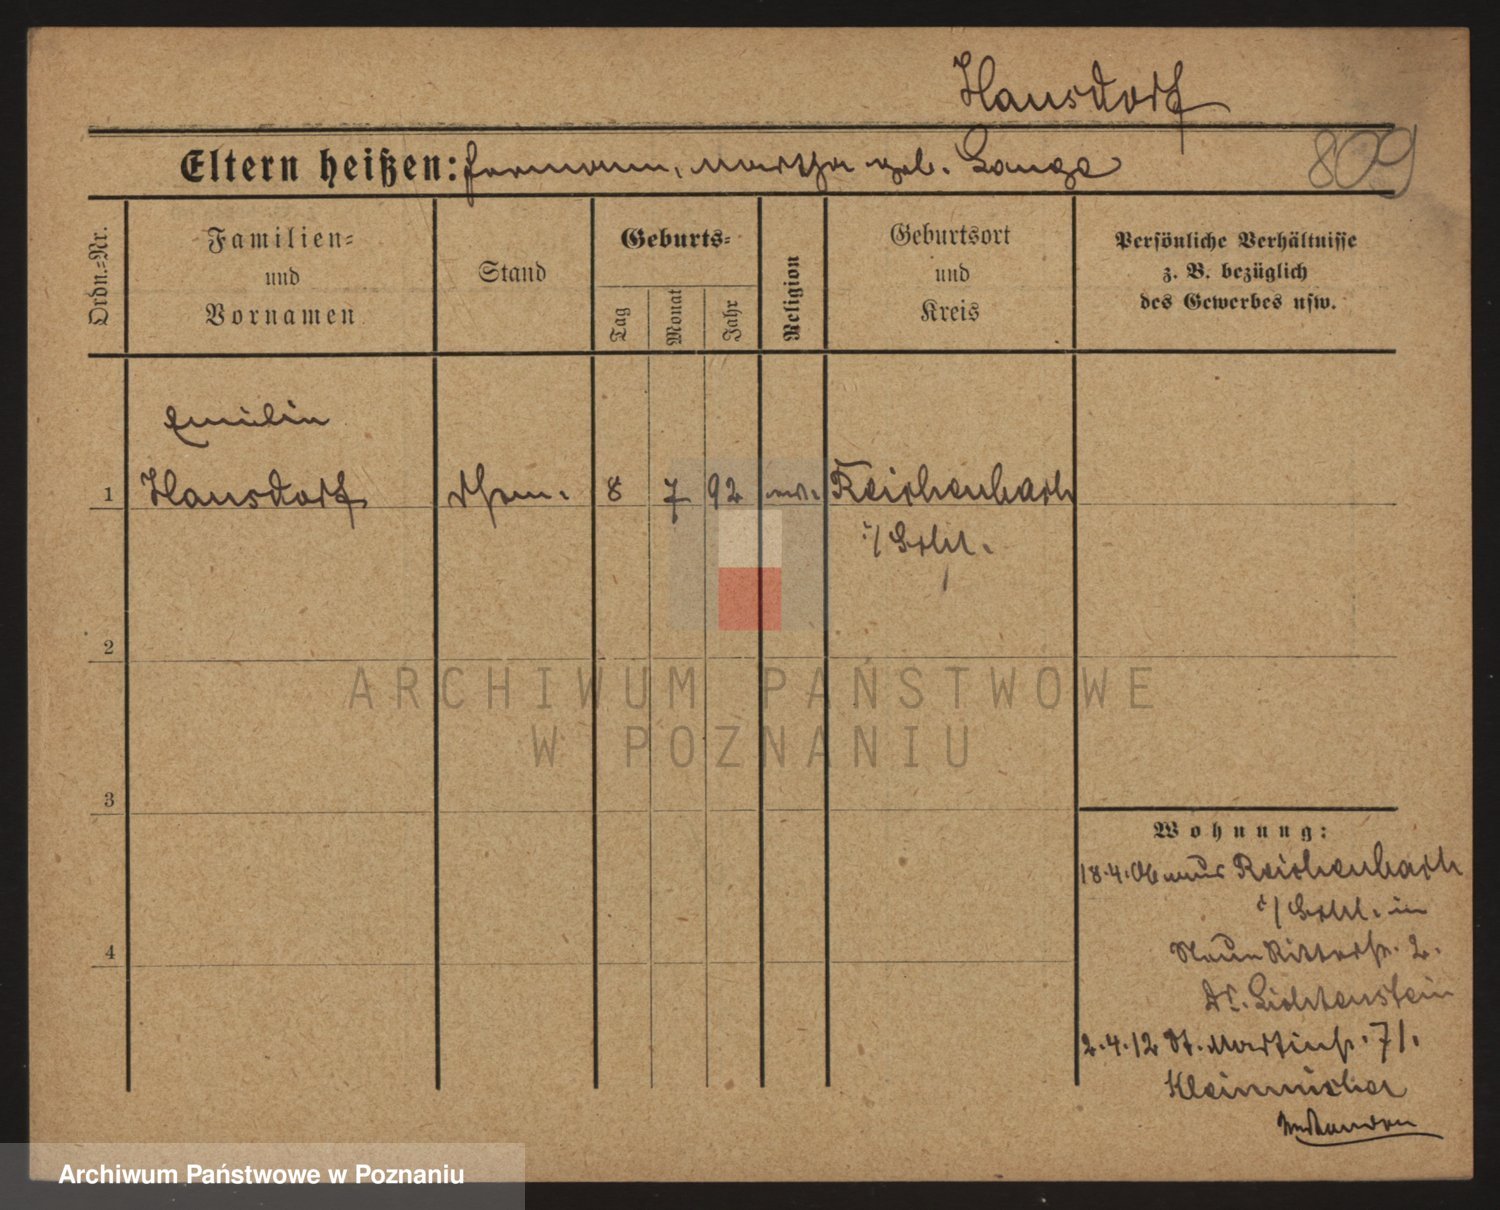 Hausdorf
809
Eltern heißen: Hermann, Martha geb. Lange
Ordn.-Nr.
Familien-
und
Vornamen
Stand
Geburts-
Tag
Monat
Jahr
Religion
Geburtsort
und
Kreis
Persönliche Verhältnisse
z. B. bezüglich
des Gewerbes usw.
Emilie
1 Hausdorf 8 7 92 Reichenbach
i/Schl.
2
ARCHIWUM PAŃSTWOWE
W POZNANIU
3
4
Wohnung:
18.4.06 aus Reichenbach
i/Schl. in
Neue Ritterstr. 2.
Dr. Lichtenstein
2.4.12 St. Martinstr. 71.
Archiwum Państwowe w Poznaniu